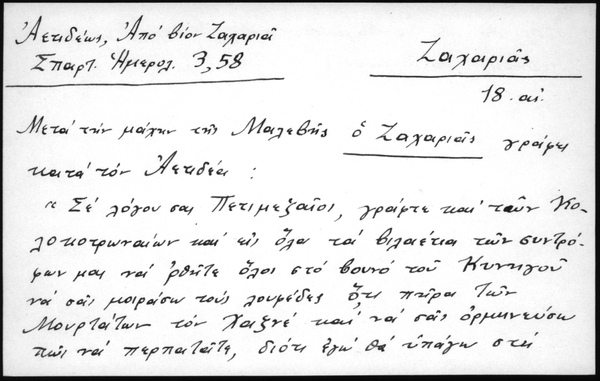 Ἀετιδέως, Ἀπό βίον Ζαχαριᾶ
Σπαρτ. Ἡμερολ. 3,58
Ζαχαριᾶς
18. αἰ.
Μετά τήν μάχην τῆς Μαλεβῆς ὁ Ζαχαριᾶς γράφει
κατά τόν Ἀετιδέα :
" Σέ λόγου σας Πετιμεζαῖοι, γράφτε καί τῶν Κο-
λοκοτρωναίων καί εἰς ὅλα τά βιλαέτια τῶν συντρό-
φων μας νά ρθῆτε ὅλοι στό βουνό τοῦ Κυνηγοῦ
νά σᾶς μοιράσω τούς λουφέδες ὅτι πῆρα τῶν
Μουρτάτων τόν Χαζνέ καί νά σᾶς ὁρμηνεύσω
πῶς νά περπατᾶτε, διότι ἐγώ θά ὑπάγω στή